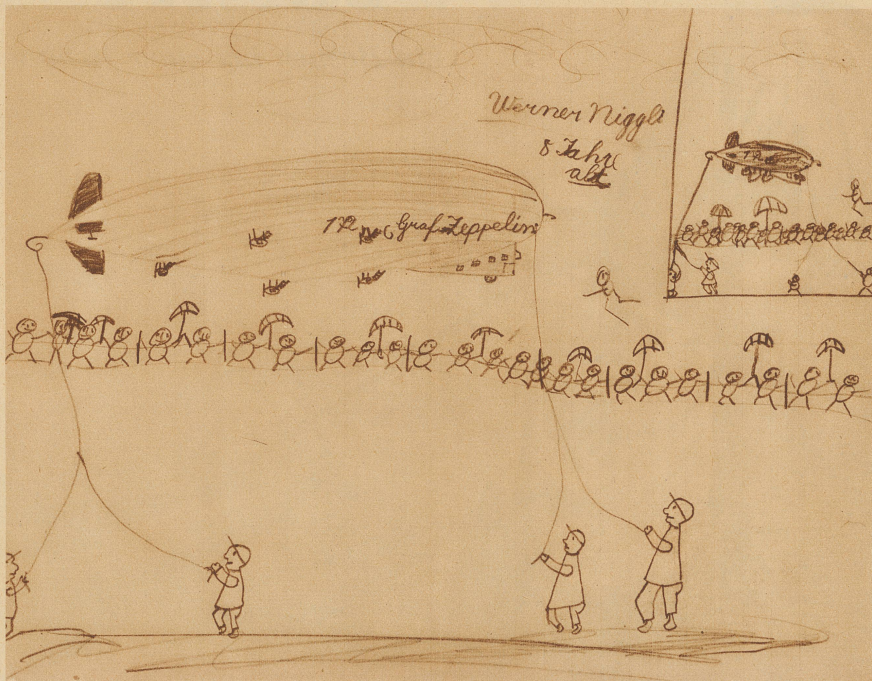 Werner Niggli
8 Jahre
alt
Graf Zeppelin